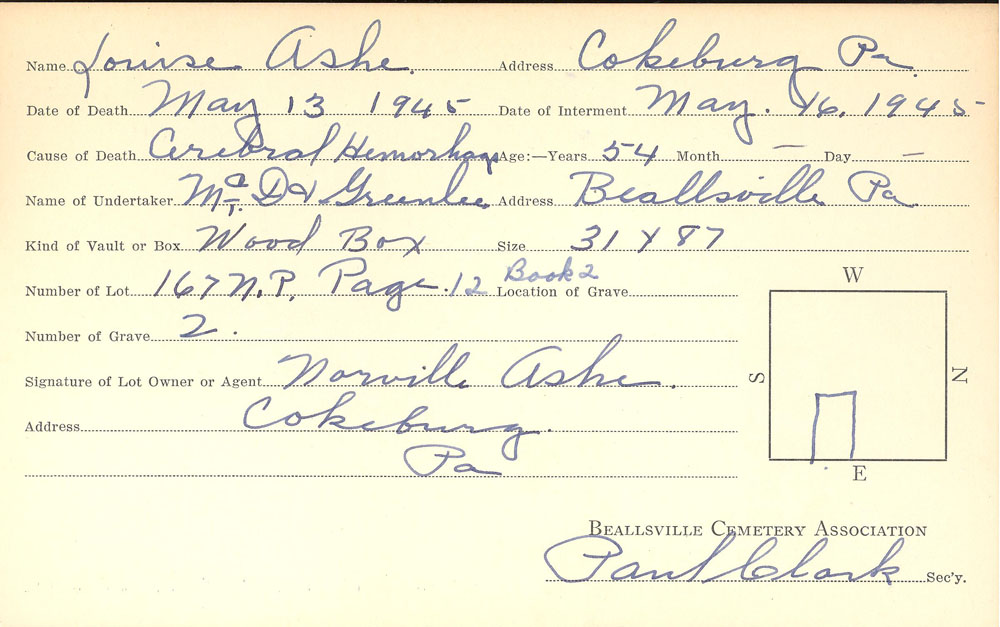 Name Louise Ashe. Address Cokeburg Pa.
Date of Death May 13 1945 Date of Interment May. 16, 1945
Cause of Death Cerebral Hemorhage Age:—Years 54 Month — Day —
Name of Undertaker & Greenlee Address Beallsville Pa
Kind of Vault or Box Wood Box Size 31 X 87
Book 2
Number of Lot 167 N.P. Page 12 Location of Grave
Number of Grave 2.
W
Signature of Lot Owner or Agent Norville Ashe.
S N
Address Cokeburg.
Pa
E
BEALLSVILLE CEMETERY ASSOCIATION
Paul Clark Sec'y.